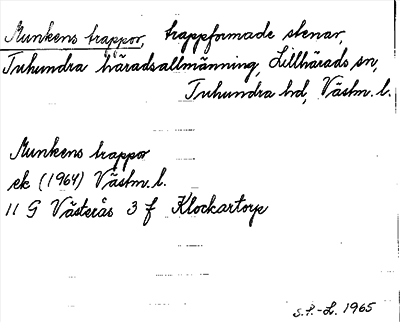 Munkens trappor, trappformade stenar,
Tuhundra häradsallmänning, Lillhärads sn,
Tuhundra hd, Västm. l.
Munkens trappor
ek (1964) Västm. l.
11 G Västerås 3 f Klockartorp
S.P.-L. 1965